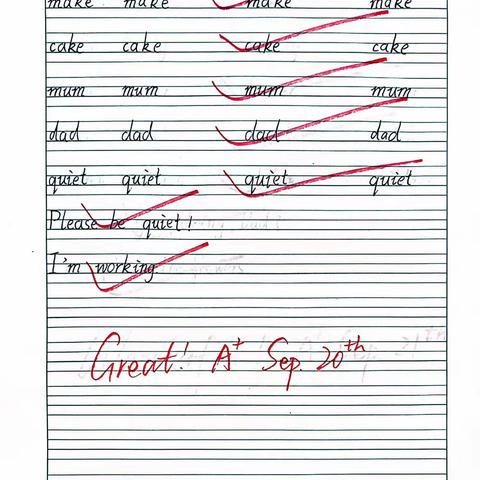 make make make make
cake cake cake cake
mum mum mum mum
dad dad dad dad
quiet quiet quiet quiet
Please be quiet!
I'm working.
Great! A+ Sep. 20th